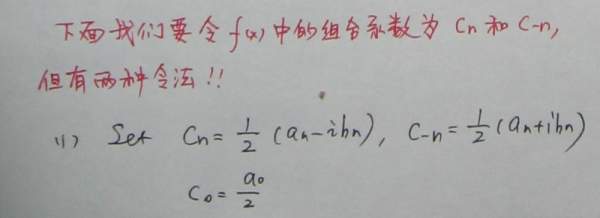 下面我们要令f(x)中的组合系数为 Cn 和 C-n,
但有两种令法!!
(1) Set Cn = 1/2 (an - ibn), C-n = 1/2 (an + ibn)
C0 = a0/2